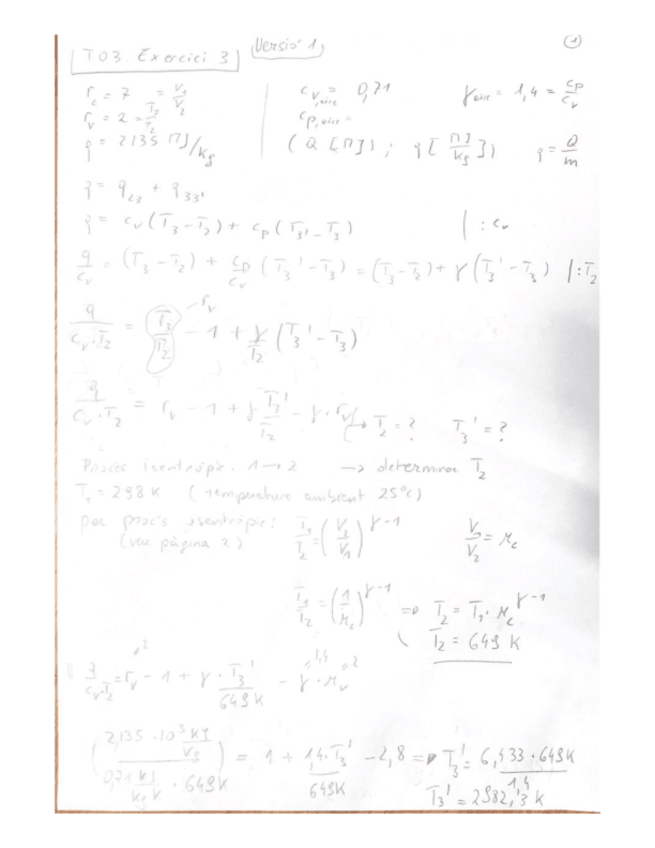 T03. Exercici 3 Versió 1 1
r_c = 7 = V_1/V_2 c_v,aire = 0,71 γ_aire = 1,4 = c_p/c_v
r_v = 2 = T_3/T_2 c_p,aire =
q = 2135 MJ/kg (Q [MJ]) ; q [MJ/kg]) q = Q/m
q = q_23 + q_33'
q = c_v (T_3 - T_2) + c_p (T_3' - T_3) | : c_v
q/c_v = (T_3 - T_2) + c_p/c_v (T_3' - T_3) = (T_3 - T_2) + γ (T_3' - T_3) | : T_2
q/(c_v · T_2) = T_3/T_2 - 1 + γ/T_2 (T_3' - T_3) r_v
q/(c_v · T_2) = r_v - 1 + γ T_3'/T_2 - γ · r_v → T_2 = ? T_3' = ?
Procés isentròpic. 1 → 2 → determinar T_2
T_1 = 298 K (temperatura ambient 25°C)
per procés isentròpic: T_1/T_2 = (V_2/V_1)^(γ-1) V_1/V_2 = r_c
(veu pàgina 2)
T_1/T_2 = (1/r_c)^(γ-1) ⇒ T_2 = T_1 · r_c^(γ-1)
T_2 = 649 K
q/(c_v · T_2) = r_v - 1 + γ · T_3'/649 K - γ · r_v 2 1,4 2
(2,135 · 10^3 kJ/kg)/(0,71 kJ/kg K · 649K) = 1 + 1,4 · T_3'/649K - 2,8 ⇒ T_3' = 6,433 · 649K/1,4
T_3' = 2982,3 K